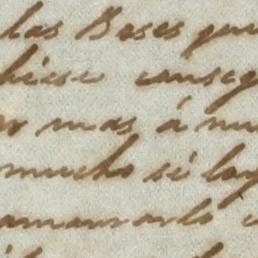 las Bases que
hiese conseg
or mas á nu
mucho si log
amarrarlo